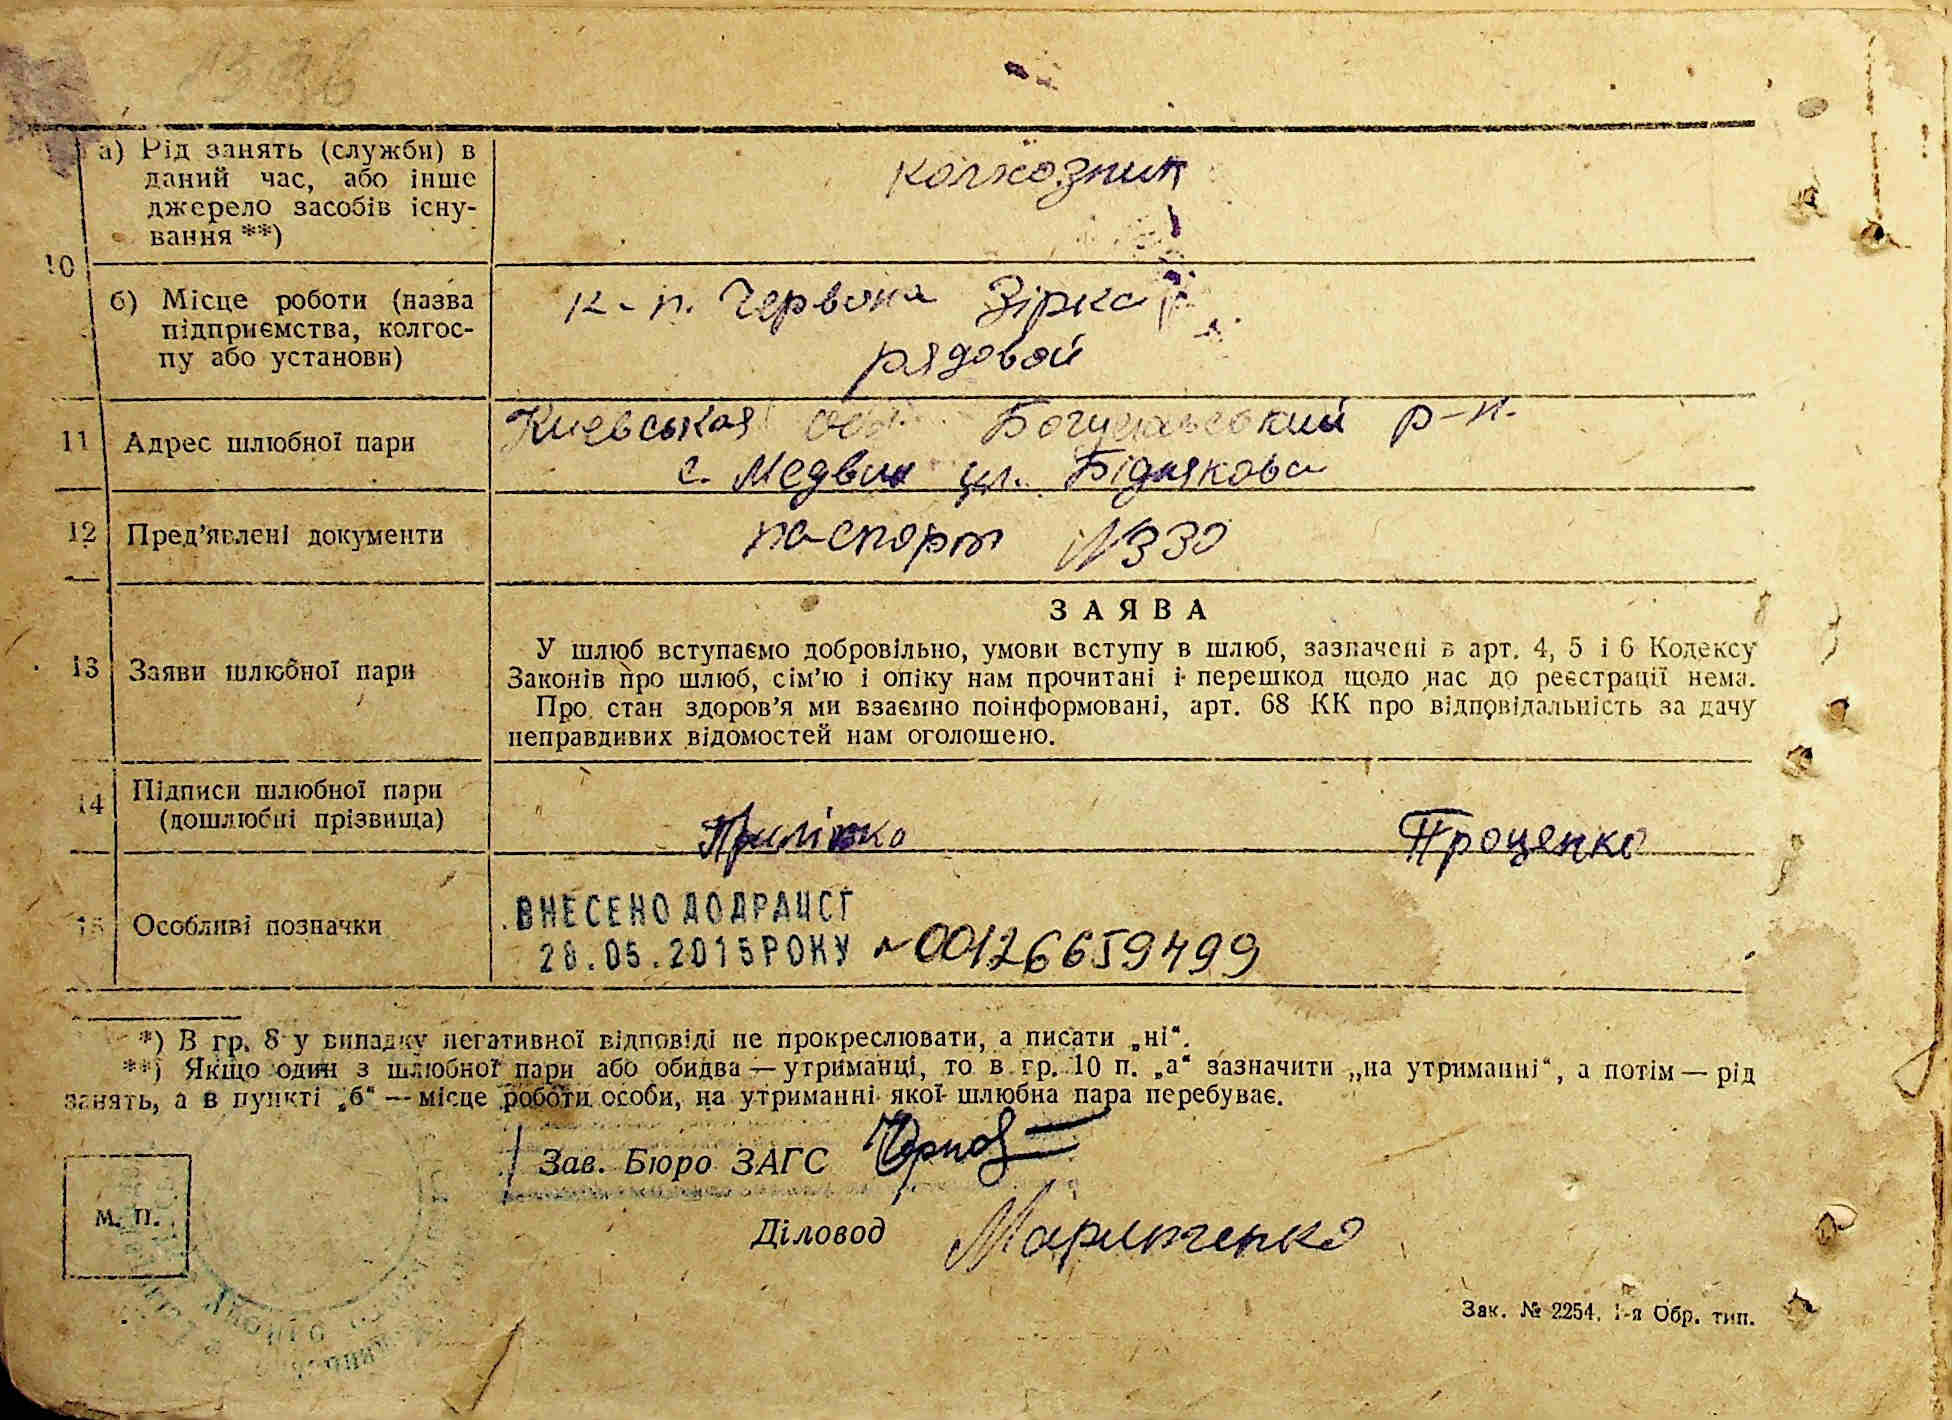 а) Рід занять (служби) в
даний час, або інше
джерело засобів існу-
вання **)
колхозник
10
б) Місце роботи (назва
підприємства, колгос-
пу або установи)
к-п. Червона Зірка
рядовой
11 Адрес шлюбної пари
Киевськая обл. Богуславський р-н.
с. Медвин ул. Біднякова
12 Пред’явлені документи
паспорт №330
13 Заяви шлюбної пари
ЗАЯВА
У шлюб вступаємо добровільно, умови вступу в шлюб, зазначені в арт. 4, 5 і 6 Кодексу
Законів про шлюб, сім’ю і опіку нам прочитані і перешкод щодо нас до реєстрації нема.
Про стан здоров’я ми взаємно поінформовані, арт. 68 КК про відповідальність за дачу
неправдивих відомостей нам оголошено.
14 Підписи шлюбної пари
(дошлюбні прізвища)
Проценко
15 Особливі позначки
ВНЕСЕНО ДО ДРАЦСГ
28.05.2015 РОКУ № 00126659499
*) В гр. 8 у випадку негативної відповіді не прокреслювати, а писати „ні“.
**) Якщо один з шлюбної пари або обидва — утриманці, то в гр. 10 п. „а“ зазначити „на утриманні“, а потім — рід
занять, а в пункті „б“ — місце роботи особи, на утриманні якої шлюбна пара перебуває.
Зав. Бюро ЗАГС
М. П.
Діловод
Зак. № 2254. 1-я Обр. тип.